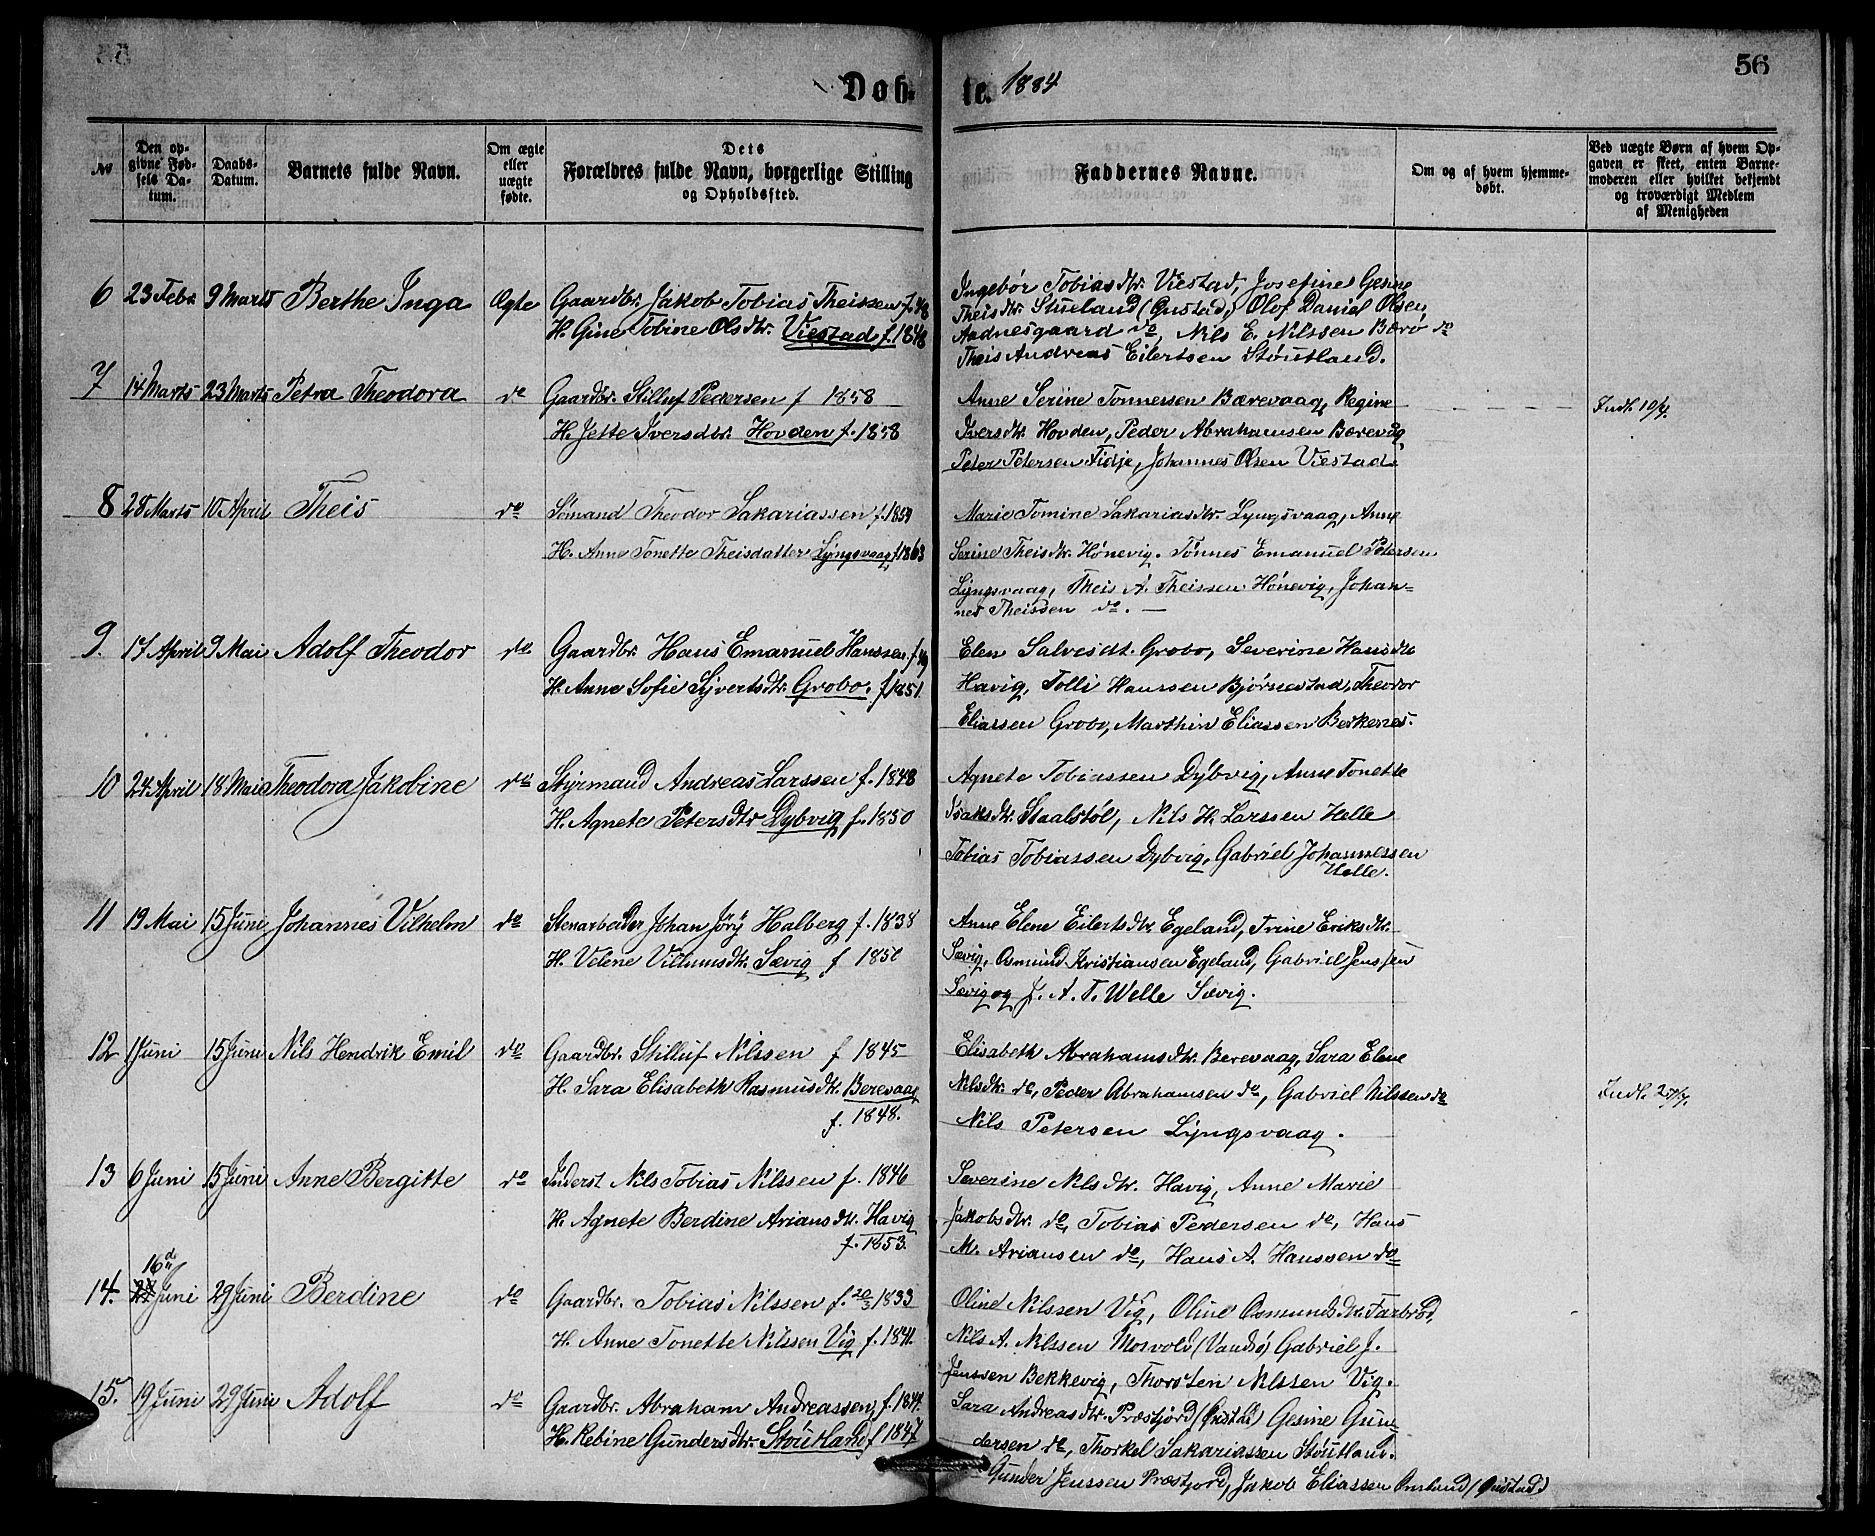 56
Døb- te. 1884
№
Den op-
givne Fød-
sels Da-
tum.
Daabs-
Datum.
Barnets fulde Navn.
Om ægte
eller
uægte
fødte.
Dets
Forældres fulde Navn, borgerlige Stilling
og Opholdssted.
Faddernes Navne.
Om og af hvem hjemme-
døbt.
Ved uægte Børn af hvem Op-
gaven er skeet, enten Barne-
moderen eller hvilket bekjendt
og troværdigt Medlem
af Menigheden
6 23 Febr 9 Marts Berthe Inga Ægte Gaardbr. Jakob Tobias Theissen f. 48
H. Gine Tobine Olsdtr. Viestad f. 1848
Ingebør Tobiasdtr. Viestad, Josefine Gesine
Theisdtr. Stueland (Øustad,) Olof Daniel Olsen
Aadnesgaard do, Nils E. Nilssen Bærø do
Theis Andreas Eilertsen Støutland.
7 14 Marts 23 Marts Petra Theodora do Gaardbr. Stilluf Pedersen f 1858
H. Jette Iversdtr. Hovden f. 1858
Anne Serine Tønnessen Bærevaag, Regine
Iversdtr. Hovden, Peder Abrahamsen Bærevig
Peter Petersen Fidje, Johannes Olsen Viestad.
Indt. 10/4.
8 28 Marts 10 April Theis do Sømand Theodor Sakariassen f. 1859
H. Anne Tonette Theisdatter Lyngsvaag f 1863
Marie Tomine Sakariasdtr. Lyngsvaag, Anne
Serine Theisdtr. Hønevig. Tønnes Emanuel Petersen
Lyngsvaag, Theis A. Theissen Hønevig, Johan-
nes Theissen do. —
9. 17 April 9 Mai Adolf Theodor do Gaardbr. Hans Emanuel Hanssen f. 49
H. Anne Sofie Syvertsdtr. Grobo. f 1851.
Elen Salvesdt. Grobo, Severine Hansdtr
Havig, Tolli Hanssen Bjørnestad, Theodor
Eliassen Grobo, Marthin Eliassen Berkenes.
10 24 April 18 Mai Theodora Jakobine do Styrmand Andreas Larssen f. 1848
H. Agnete Petersdtr Dybvig f. 1850
Agnete Tobiassen Dybvig, Anne Tonette
Isaksdtr. Staalstøl, Nils H. Larssen Helle
Tobias Tobiassen Dybvig, Gabriel Johannessen
Helle.
11 19 Mai 15 Juni Johannes Vilhelm do Stenarbeider Johan Jørj Halberg f. 1838
H. Velene Villumsdtr. Sævig f 1850
Anne Elene Eilertsdtr Egeland, Trine Eriksdtr.
Sævig, Osmund Kristiansen Egeland, Gabriel Jenssen
Sævig og J. A. T. Welle Sævig.
12 1 Juni 15 Juni Nils Hendrik Emil do Gaardbr. Stilluf Nilssen f 1845
H. Sara Elisabeth Rasmusdtr. Berevaag
f. 1848.
Elisabeth Abrahamsdtr. Berevaag, Sara Elene
Nilsdtr. do, Peder Abrahamsen do, Gabriel Nilssen do
Nils Petersen Lyngsvaag.
Indt. 25/7.
13 6 Juni 15 Juni Anne Bergitte do Inderst Nils Tobias Nilssen f. 1846
H. Agnete Berdine Ariansdtr. Havig
f. 1853.
Severine Nilsdtr. Havig, Anne Marie
Jakobsdtr. do, Tobias Pedersen do, Hans
M. Ariansen do, Hans A. Hanssen do
14. 16d Juni 29 Juni Berdine do Gaardbr. Tobias Nilssen f. 20/3 1833
H. Anne Tonette Nilssen Vig f. 1841.
Oline Nilssen Vig, Oline Osmundsdtr. Farbrød,
Nils A. Nilssen Mosvold (Vandsø) Gabriel J.
Jenssen Bekkevig, Thorsten Nilssen Vig.
15. 19 Juni 29 Juni Adolf do Gaardbr. Abraham Andreassen, f. 1841.
H. Rebine Gundersdtr. Støutland f 1847
Sara Andreasdtr. Præstjord (Øustad) Gesine Gun-
dersen do, Thorkel Sakariassen Støutland.
Gunder Jenssen Præstjord, Jakob Eliassen Omland (Øustad)